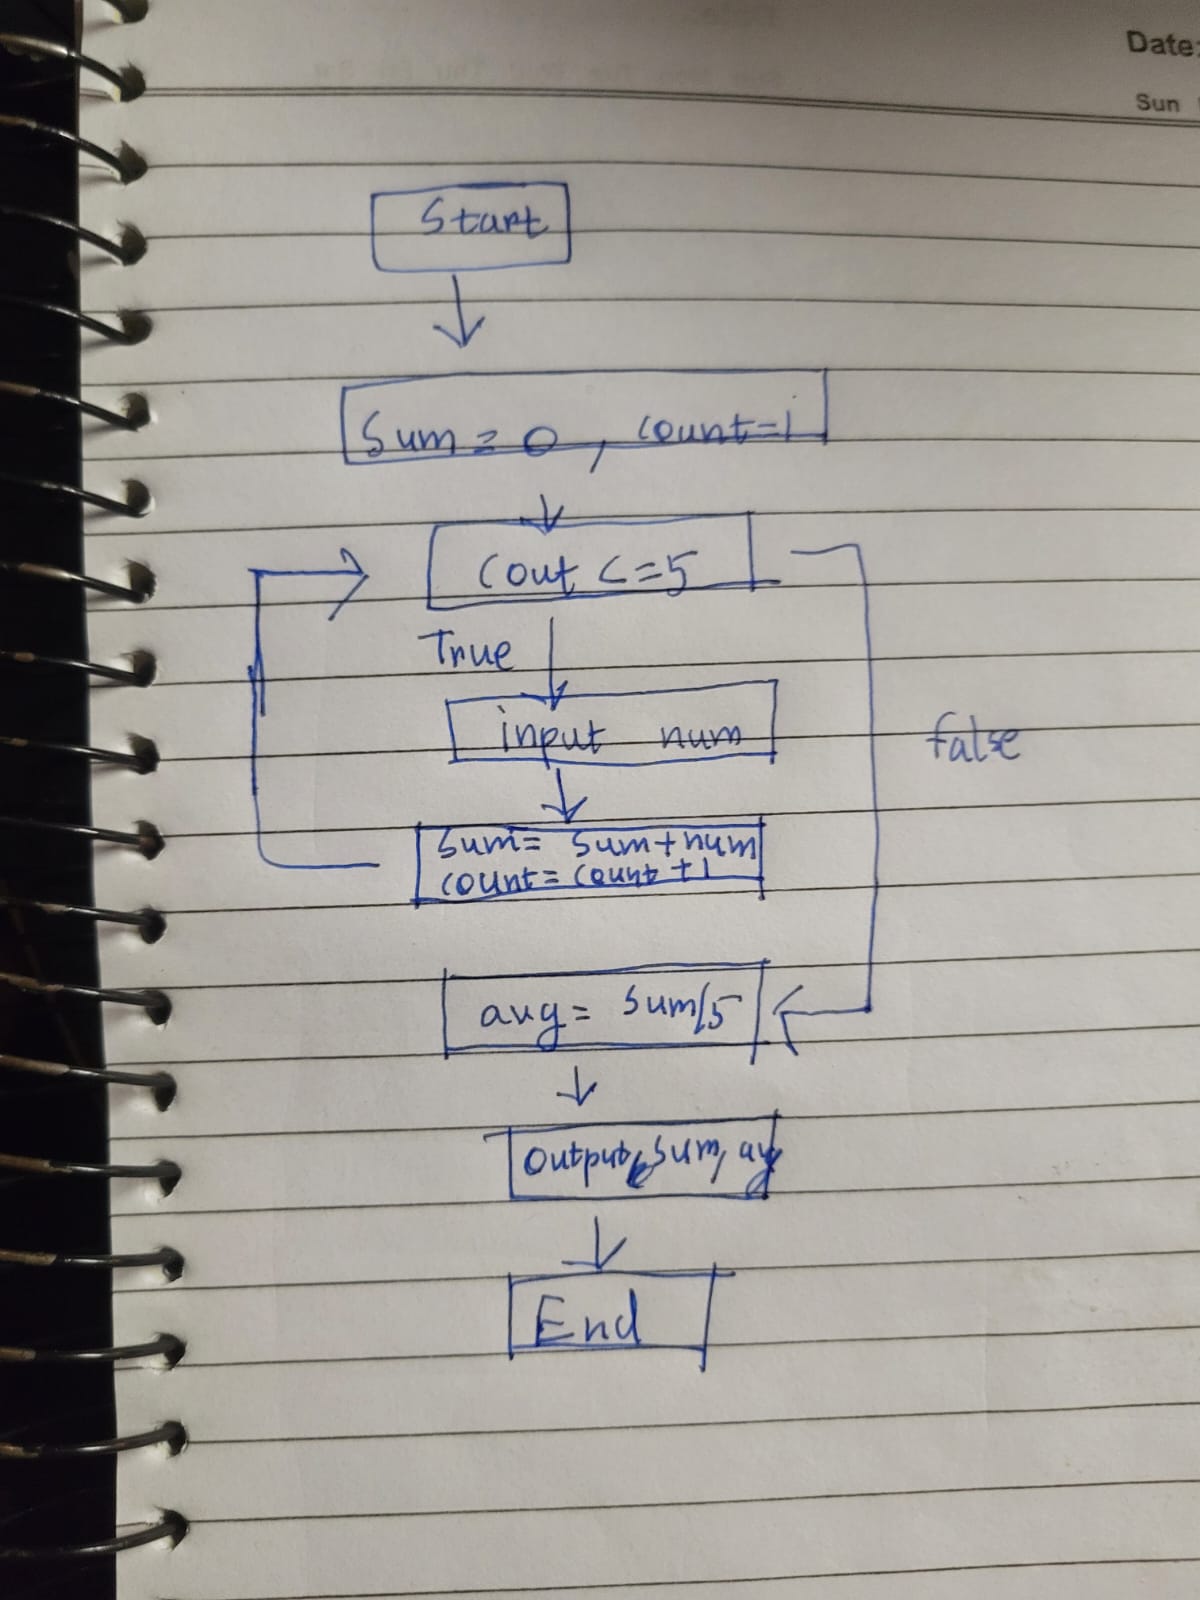 Date:
Sun
Start
Sum = 0, count=1
Cout <=5
True
input num
false
sum= sum+num
count= count+1
avg= sum/5
output sum, avg
End